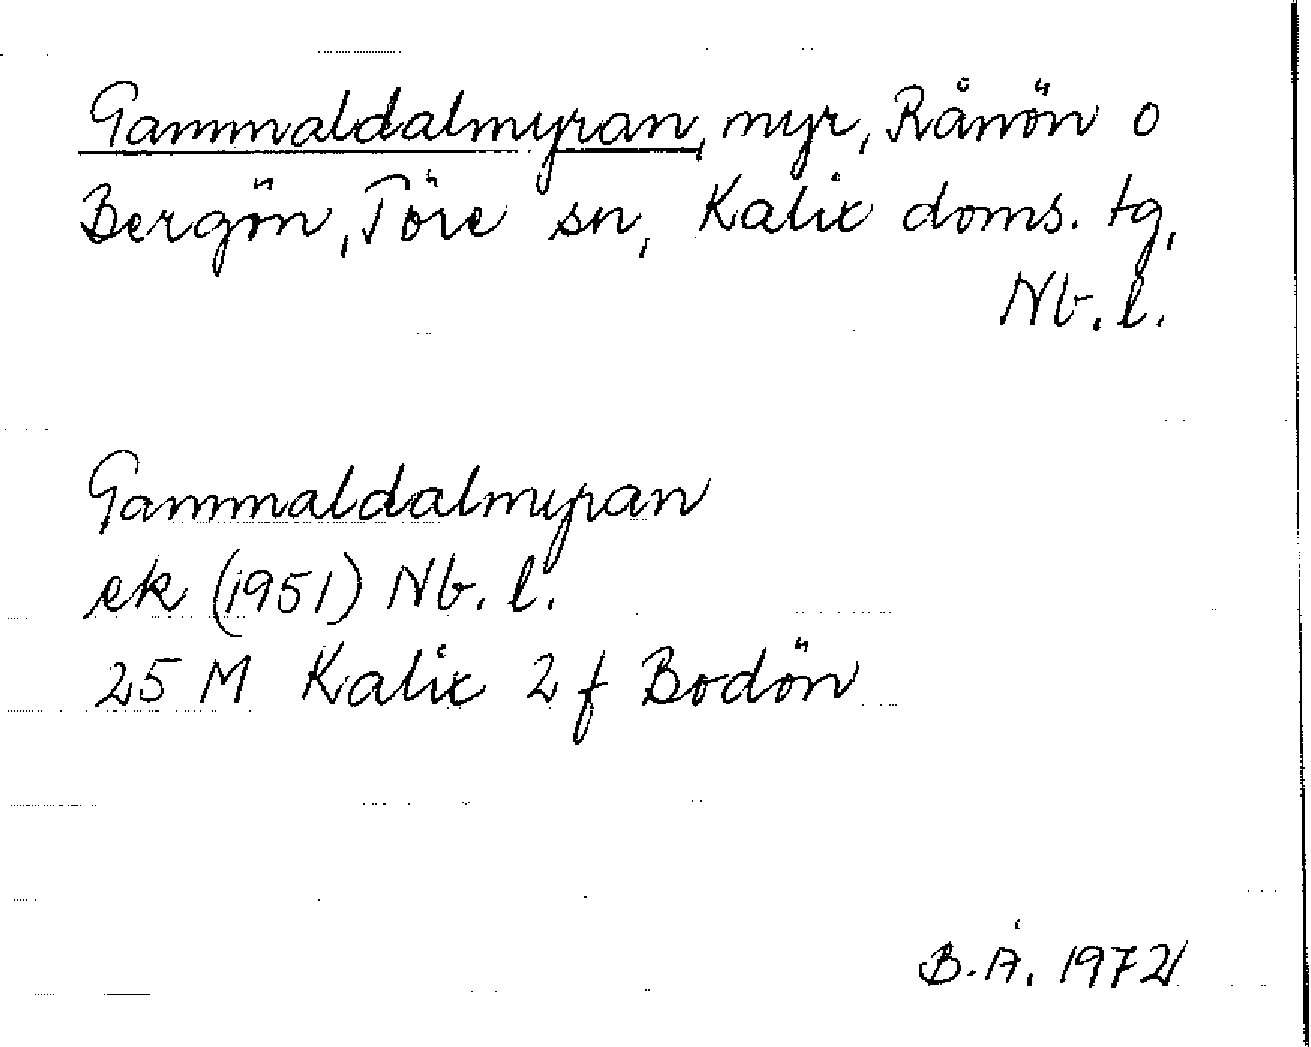 Gammaldalmyran, myr, Rånön o
Bergön, Töre sn, Kalix doms. tg,
Nb. l.
Gammaldalmyran
ek (1951) Nb. l.
25 M Kalix 2 f Bodön
B. Å. 1972